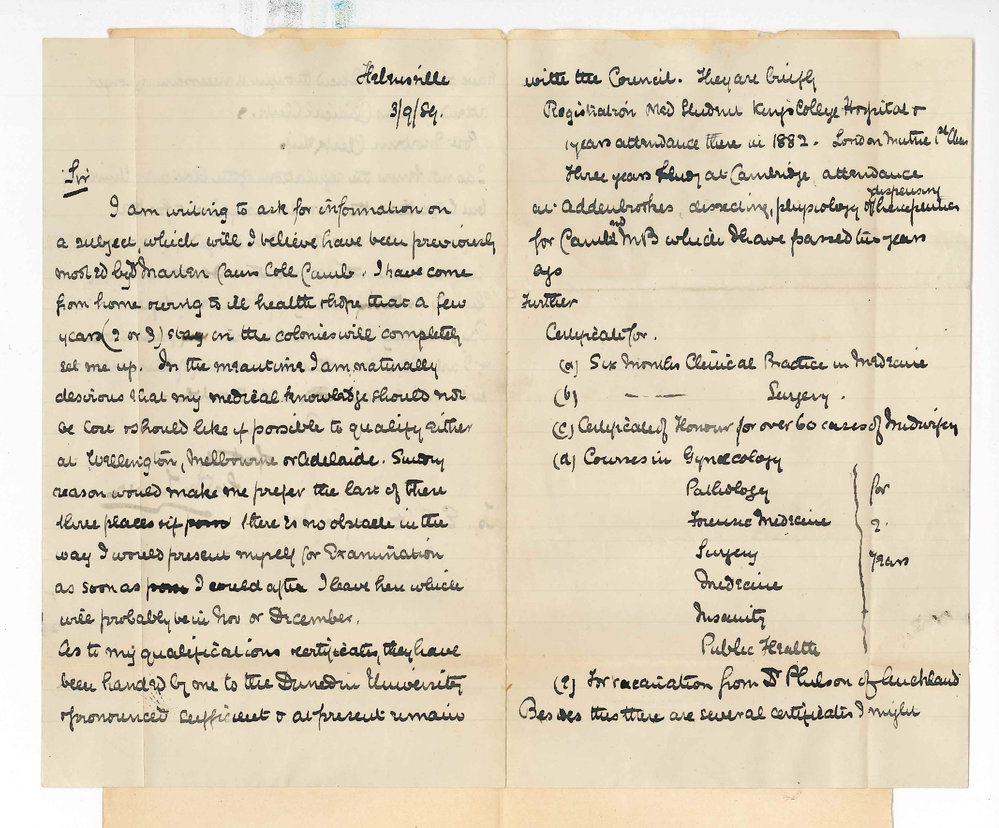 Helensville
3/9/89.
Sir
I am writing to ask for information on
a subject, which will I believe have been previously
mooted by Dr Marten Caius Coll Camb. I have come
from home owing to ill health & hope that a few
years (2 or 3) stay in the colonies will completely
set me up. In the meantime I am naturally
desirous that my medical knowledge should not
be lost & should like if possible to qualify either
at Wellington, Melbourne or Adelaide. Sundry
reason would make me prefer the last of these
three places & if there is no obstacle in the
way I would present myself for Examination
as soon as I could after I leave here which
will probably be in Nov or December.
As to my qualifications & certificates, they have
been handed by me to the Dunedin University
& pronounced sufficient & at present remain
with the Council. They are briefly
Registration Med Student Kings College Hospital &
1 years attendance there in 1882 - London Matric 1st Class
Three years study at Cambridge, attendance
at Addenbrookes, dissecting, physiology dispensing & therapeutics
for Camb 2nd MB which I have passed two years
ago
Further
Certificate for.
(a) Six Months Clinical Practice in Medicine
(b) — — — Surgery.
(c) Certificate of Honour for over 60 cases of Midwifery
(d) Courses in Gynæcology
Pathology
Forensic Medicine
Surgery
Medicine
Insanity
Public Health
For
2
Years
(e) For vaccination from Dr Philson of Auckland
Besides this there are several certificates I might